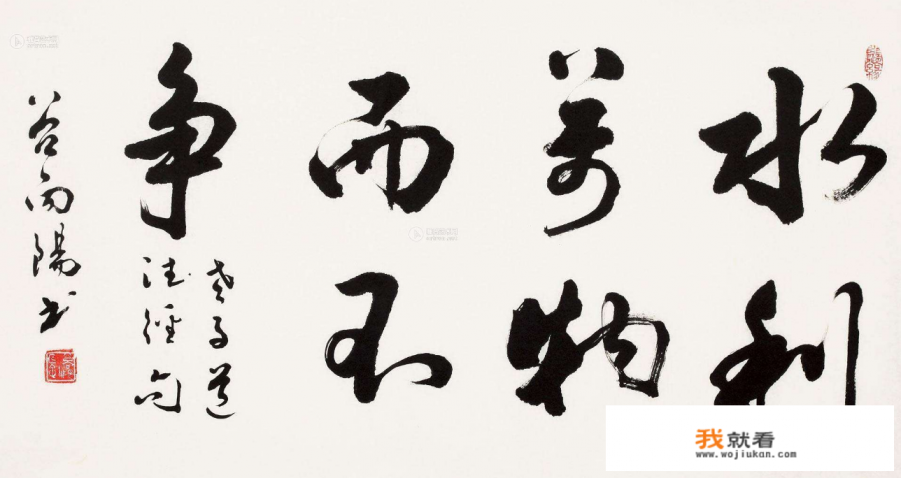 水利
萬物
而不
争
老子道
德經句
谷向陽书
我就看
www.wojiukan.com